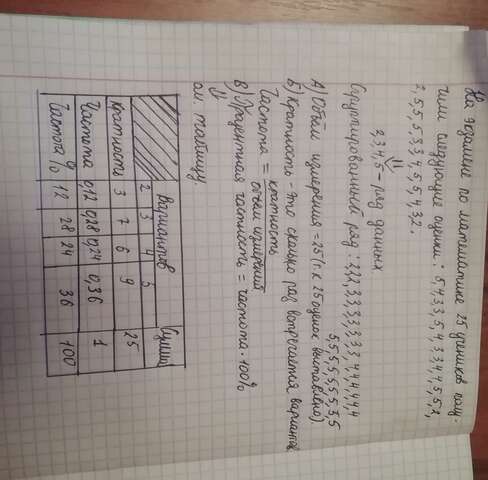 На экзамене по математике 25 учеников полу-
чили следующие оценки: 5,4,3,3,5,4,3,3,4,4,5,5,2,
2,5,5,5,3,3,4,5,5,4,3,2.
2,3,4,5 - ряд данных
Сгруппированный ряд: 2,2,2,3,3,3,3,3,3,3,4,4,4,4,4,4
5,5,5,5,5,5,5,5,5
А) Объём измерения = 25 (т.к 25 оценок выставлено)
Б) Кратность - это сколько раз встречается варианта
Частота = кратность
объём измерений
В) Процентная частотность = частота · 100%
см. таблицу
Вариантов Сумма
2 3 4 5
Кратность 3 7 6 9 25
Частота 0,12 0,28 0,24 0,36 1
Частота % 12 28 24 36 100